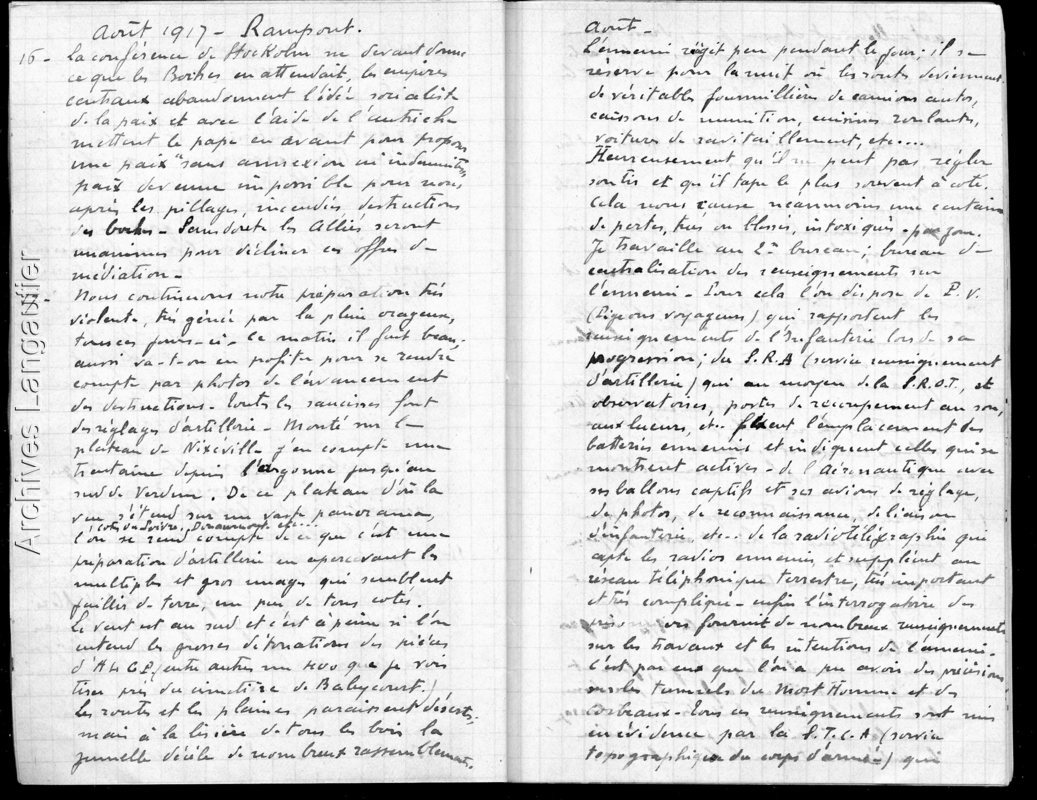 Août 1917 - Rampont.
16 - La conférence de Stockolm ne devant donner
ce que les Boches en attendait, les empires
centraux abandonnent l'idée socialiste
de la paix et avec l'aide de l'Autriche
mettent le pape en avant pour proposer
une paix "sans annexion ni indemnités
paix devenue impossible pour nous
après les pillages, incendies, destructions
des boches - Sans doute les Alliés seront
unanimes pour décliner ces offres de
médiation -
Nous continuons notre préparation très
violente, très gênée par la pluie orageuse,
tous ces jours-ci - le matin il fait beau,
aussi va-t-on en profiter pour se rendre
compte par photos de l'avancement
des destructions - Toutes les saucisses font
des réglages d'artillerie - Monté sur le
plateau de Nixéville j'en compte une
trentaine depuis l'Argonne jusqu'au
sud de Verdun. De ce plateau d'où la
vue s'étend sur un vaste panorama,
(côtes du Poivre, Douaumont etc...
l'on se rend compte de ce que c'est une
préparation d'artillerie en apercevant les
multiples et gros nuages qui semblent
jaillir de terre, un peu de tous cotés.
Le vent est au sud et c'est à peine si l'on
entend les grosses détonations des pièces
d'ALGP, (entre autres un 400 que je vois
tirer près du cimetière de Baleycourt.)
Les routes et les plaines paraissent désertes,
mais à la lisière de tous les bois la
jumelle décèle de nombreux rassemblements.
Août -
L'ennemi réagit peu pendant le jour; il se
réserve pour la nuit où les routes deviennent
de véritables fourmillières de camions autos,
caissons de munition, cuisines roulantes,
voitures de ravitaillement, etc....
Heureusement qu'il ne peut pas régler
ses tirs et qu'il tape le plus souvent à coté.
Cela nous cause néanmoins une centaine
de pertes, tués ou blessés, intoxiqués - par jour.
Je travaille au 2me bureau; bureau de
centralisation des renseignements sur
l'ennemi - Pour cela l'on dispose de P.V.
(Pigeons voyageurs) qui rapportent les
renseignements de l'Infanterie lors de sa
progression; du S.R.A (service renseignement
d'artillerie) qui au moyen de la S.R.O.T., et
observatoires, postes de recoupement au son,
aux lueurs, etc.. fixent l'emplacement des
batteries ennemies et indiquent celles qui se
montrent actives - de l'Aéronautique avec
ses ballons captifs et ses avions de réglage,
de photos, de reconnaissance, de liaison
d'infanterie etc.. de la radiotélégraphie qui
capte les radios ennemis et supplient au
réseau téléphonique terrestre, très important
et très compliqué - enfin l'interrogatoire des
fournit de nombreux renseignements
sur les travaux et les intentions de l'ennemi.
C'est par eux que l'on a pu avoir des précisions
sur les tunnels du Mort Homme et des
Corbeaux - Tous ces renseignements sont mis
en évidence par la S.T.C.A (service
topographique du corps d'armée) qui
Archives Langantier